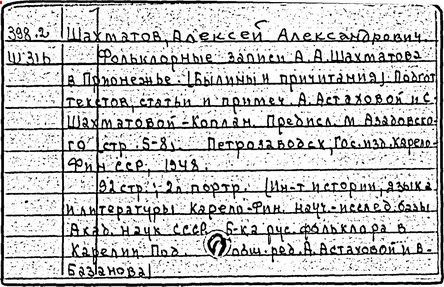 398.2 Шахматов, Алексей Александрович.
Ш 31ь Фольклорные записи А.А. Шахматова
в Прионежье. [Былины и причитания] Подгот.
текстов, статьи и примеч. А. Астаховой и С.
Шахматовой-Коплан. Предисл. М. Азадовско-
го (стр. 5-8). Петрозаводск, Гос. изд. Карело-
Фин ССР, 1948.
92 стр.; 2 л. портр. (Ин-т истории, языка
и литературы Карело-Фин. науч.-исслед. базы
Акад. наук СССР. Б-ка рус. фольклора в
Карелии Под общ. ред. А. Астаховой и В.
Базанова)